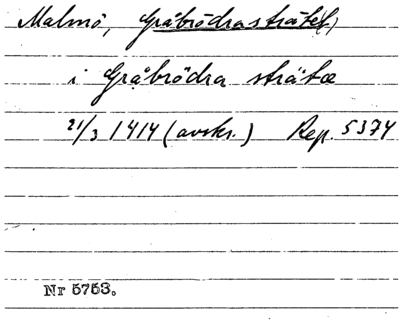 Malmö, Gråbrödrasträtet(,)
i Gråbrödra strätæ
21/3 1414 (avskr.) Rep. 5374
Nr 5753.